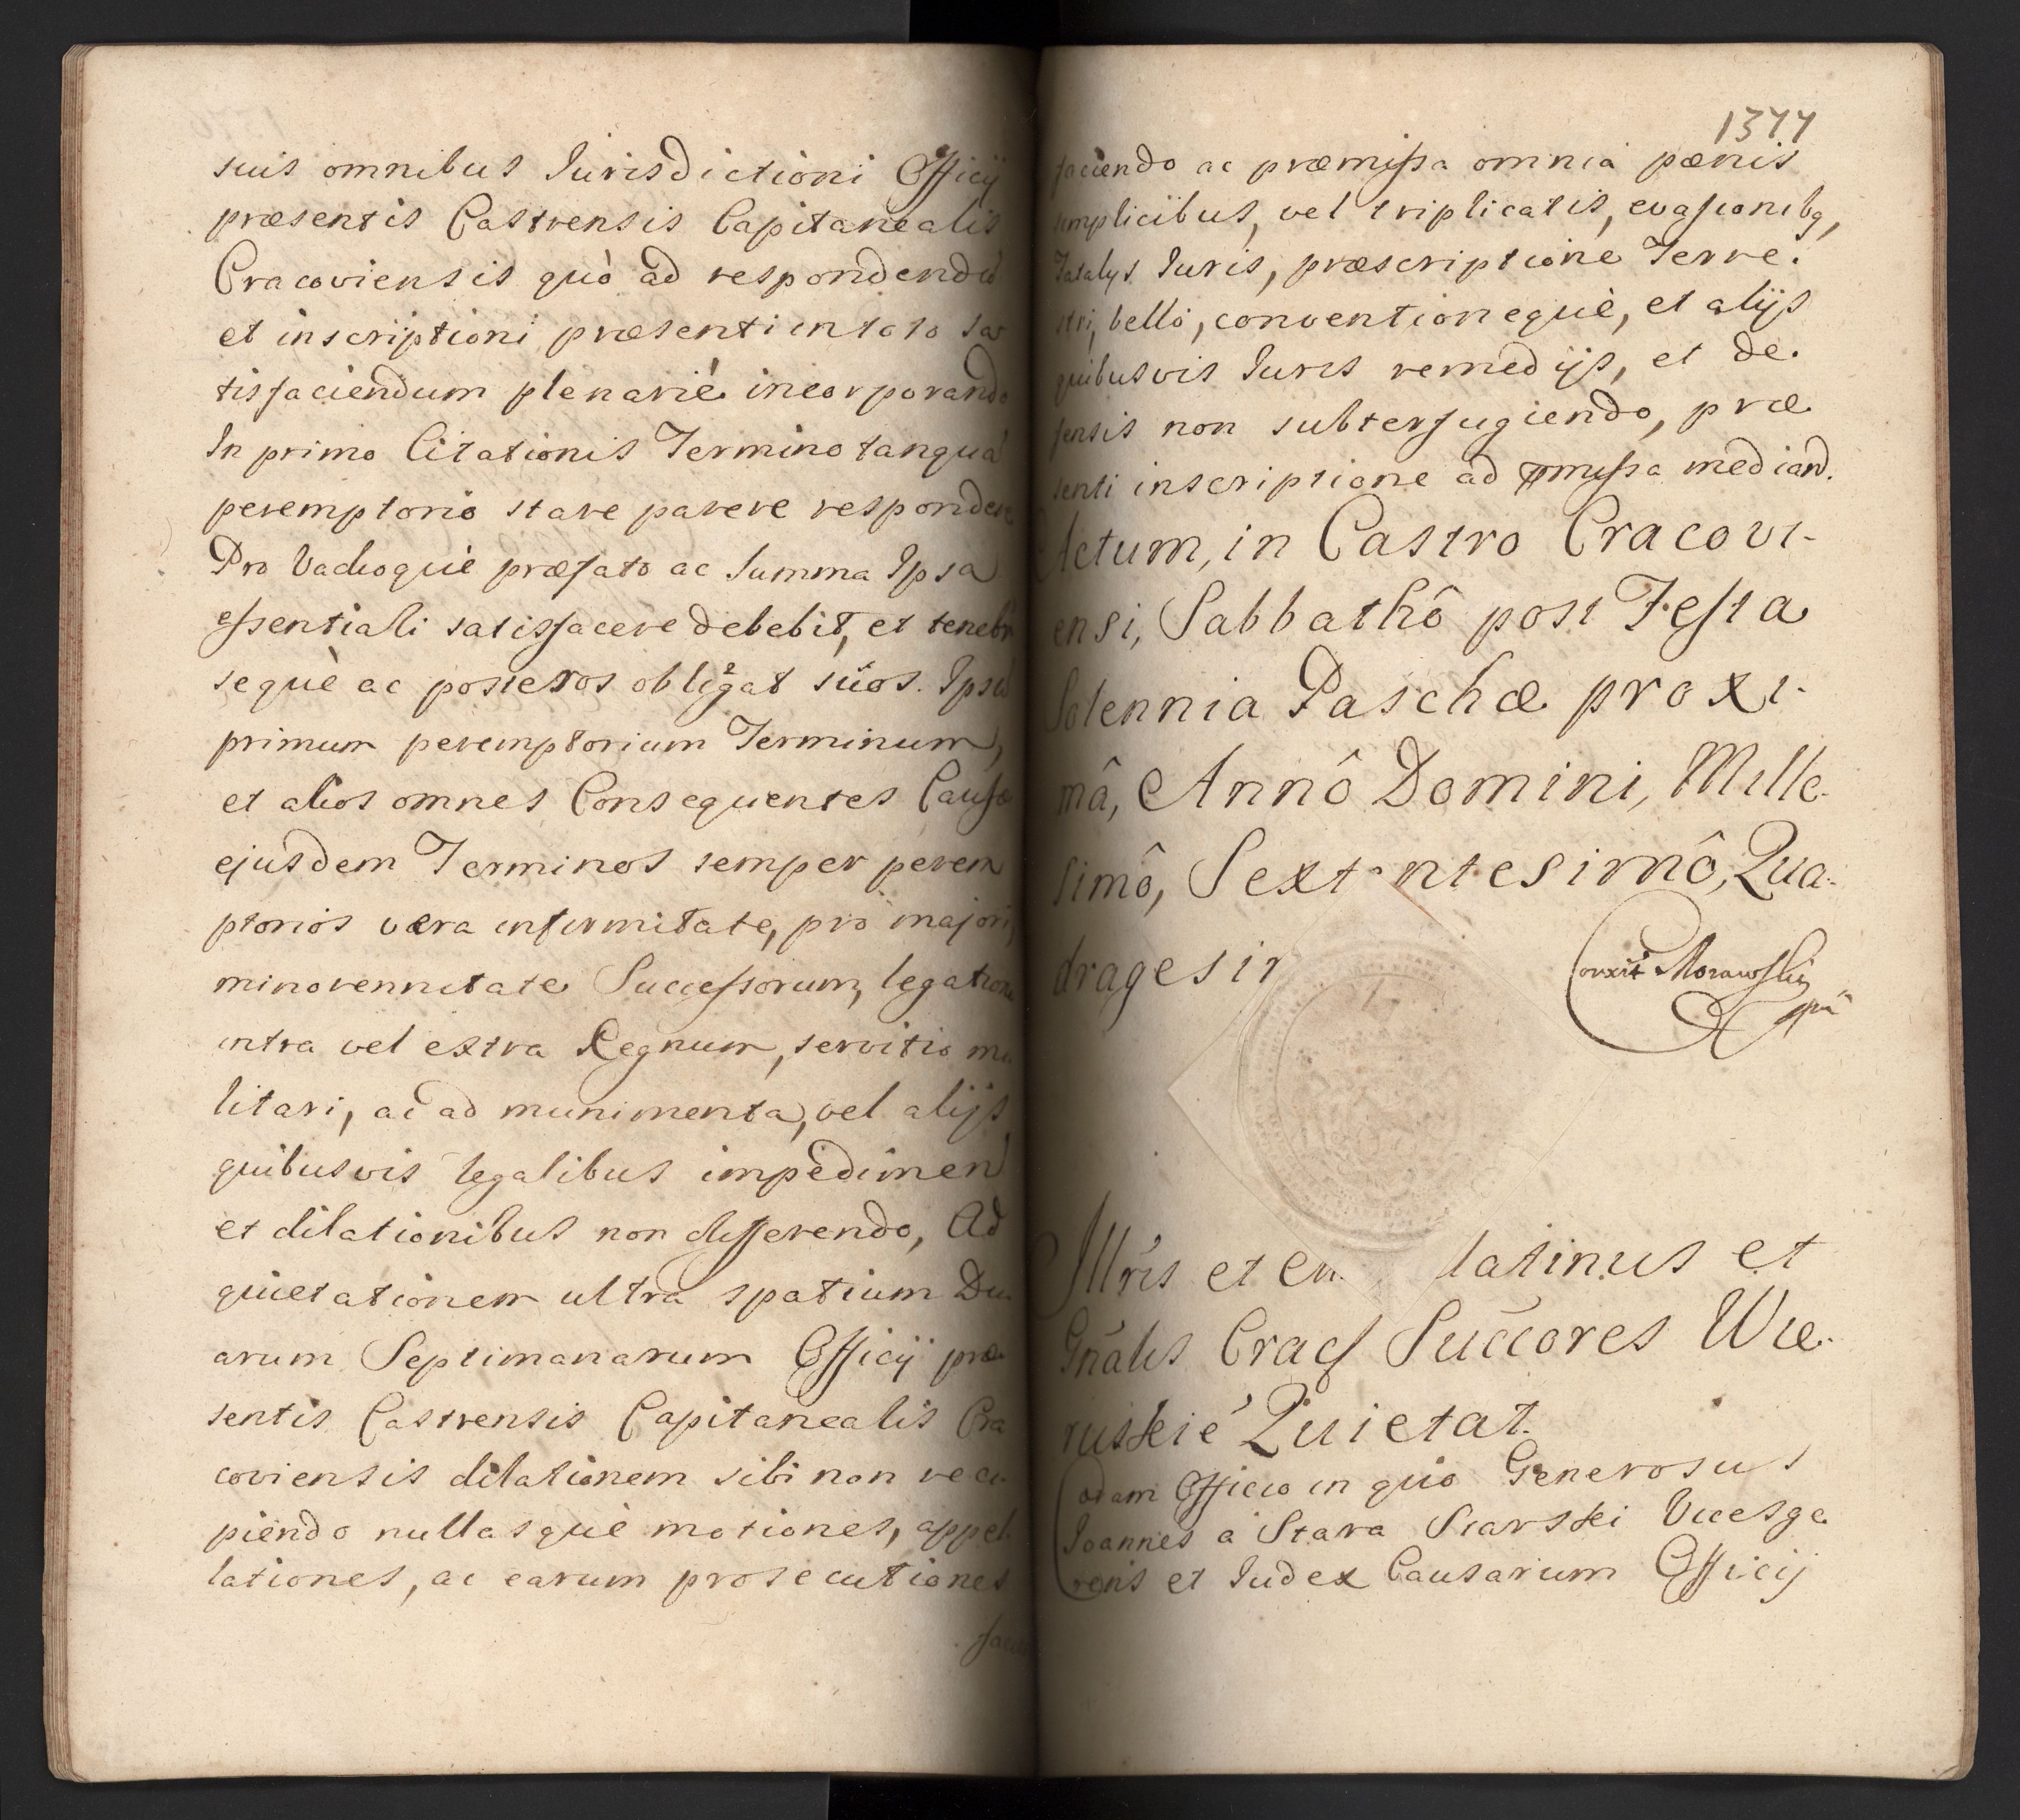 suis omnibus Jurisdictioni Officij
præsentis Castrensis Capitanealis
Cracoviensis quò ad respondendũ
et inscriptioni præsenti in toto sa
tisfaciendum plenariè incorporando
In primo Citationis Termino tanquã
peremptorio stare parere respondere
Pro Vadioquè præfato ac Summa Ipsa
essentiali satisfacere debebit, et tenebr
sequè ac posteros obligat suos. Ipsũ
primum peremptorium Terminum,
et alios omnes Consequentes Causæ
ejusdem Terminos semper perem
ptorios væra infirmitate, prò majori,
minorennitate Successorum, legatione
intra vel extra Regnum, servitio mi
litari, ac ad munimenta, vel alijs
quibusvis legalibus impedimen
et dilationibus non differendo, Ad
quietationem ultra spatium Du
arum Septimanarum Officij præ
sentis Castrensis Capitanealis Cra
coviensis dilationem sibi non reci
piendo nullasquè motiones, appel
lationes, ac earum prosecutiones
1377
faciendo ac præmissa omnia pænis
simplicibus, vel triplicatis, evasionibq,
Fatalys Juris, præscriptione Terre.
stri, bello, conventionequè, et alijs
quibusvis Juris remedijs, et de.
fensis non subterfugiendo, præ
senti inscriptione ad pmissa mediand.
Actum, in Castro Cracovi-
ensi, Sabbathô post Festa
Solennia Paschæ proxi-
mâ, Annô Domini, Mille-
simô, Sext ntesimô, Qua-
dragesi
Corexit Morawski
mpa
Illris et latinus et
Gnãlis Cracs Succores Wie-
ruskie Quietat.
Coram Officio in quo Generosus
Joannes a Stara Starski Vicesge
rens et Judex Causarum Officij